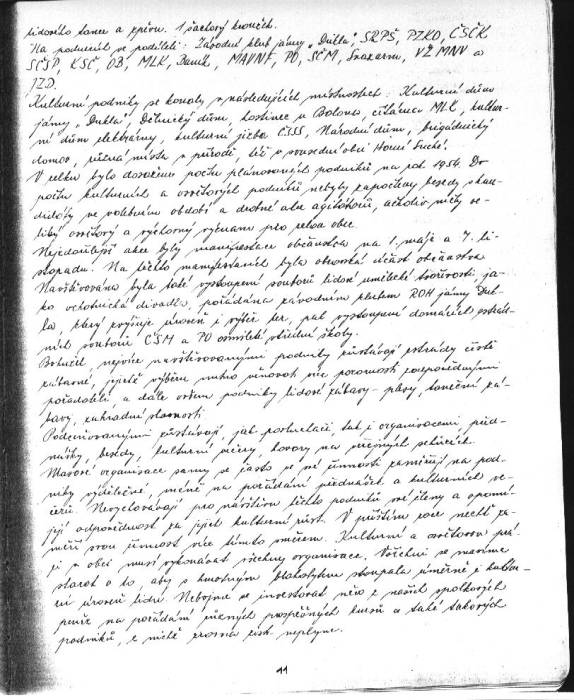 lidového tance a zpěvu. 1 šachový kroužek.
Na podnicích se podíleli: Závodní klub jámy „Dukla", SRPŠ, PZKO, ČSČK
SČSP, KSČ, OB, MLK, Baník, MAVNF, PO, SČM, Svazarm, VŽ MNV a
JZD.
Kulturní podniky se konaly v následujících místnostech: Kulturní dům
jámy „Dukla", Dělnický dům, hostinec u Bolona, čítárna MLK, kultur-
ní dům elektrárny, kulturní jizba ČISS, Národní dům, brigádnický
domov, různá místa v přírodě, též v sousední obci Horní Suché.
V celku bylo dosaženo počtu plánovaných podniků na rok 1954. Do
počtu kulturních a osvětových podniků nebyly započítány besedy s kan-
didáty ve volebním období a drobné akce agitátorů, ačkoliv měly ve-
liký osvětový a výchovný význam pro celou obec.
Nejzdařilejší akce byly manifestace občanstva na 1. máje a 7. li-
stopadu. Na těchto manifestacích byla obrovská účast občanstva
Navštěvována byla také vystoupení souborů lidové umělecké tvořivosti, ja-
ko ochotnická divadla, pořádána závodním klubem ROH jámy Duk-
la, který zvyšuje úroveň i výběr her, pak vystoupení domácích estrád-
ních souborů ČSM a PO osmileté střední školy.
Bohužel, nejvíce navštěvovanými podniky zůstávají estrády čistě
zábavné, jejichž výběru nutno věnovat více pozornosti zodpovědnými
pořadateli a dále ovšem podniky lidové zábavy - plesy, taneční zá-
bavy, zahradní slavnosti.
Podceňovanými zůstávají, jak posluchači, tak i organisacemi, před-
nášky, besedy, kulturní večery, hovory na veřejných schůzích.
Masové organisace samy se často ve své činnosti zaměřují na pod-
niky výdělečné, méně na pořádání přednášek a kulturních ve-
čerů. Nevychovávají pro návštěvu těchto podniků své členy a opomí-
její odpovědnost za jejich kulturní růst. V příštím roce nechť za-
měří svou činnost více tímto směrem. Kulturní a osvětovou prá-
ci v obci musí vykonávat všechny organisace. Všichni se musíme
starat o to, aby s hmotným blahobytem stoupala úměrně i kultur-
ní úroveň lidu. Nebojme se investovat něco z našich spolkových
peněz na pořádání různých prospěšných kursů a také takových
podniků, z nichž zrovna zisk neplyne.
11